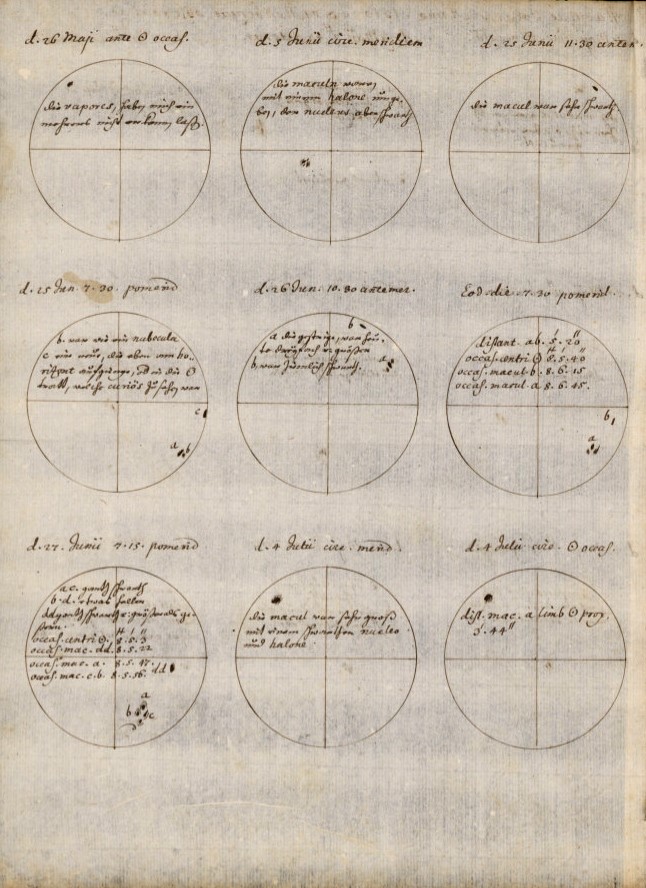 d. 26 Maji ante ☉ occas.
die vapores, haben mich ein
mehrers nicht erkennen laßen
d. 5 Junii circ. meridiem
die maculn waren
mit einem halone umge-
ben, der nucleus aber schwartz
d. 25 Junii 11. 30 antem
die macul war sehr schwartz
d. 25 Jun. 7. 30 pomerid
b. war wie ein nubecula
c ein neue, die oben am ho-
rizont aufgienge, in die ☉
tratt, welche curiös zu sehen war
c
a b
d. 26 Jun. 10. 30 antemer.
b
a die gestrige, war heu-
te größer
b. war zimlich schwartz.
a
Eod. die 7. 30 pomerid.
distant. ab. 5. 20
occas. centri ☉ 8. 5. 40
occas. macul. b. 8. 6. 15
occas. macul. a. 8. 6. 45.
b
a
d. 27. Junii 7. 15. pomerid
a c. gantz schwartz
b. d. etwas
dd gantz schwartz größer als ge-
stern.
occas. centri ☉. 8. 5. 3
occas. mac. dd. 8. 5. 22
occas. mac. a. 8. 5. 47.
occas. mac. c. b. 8. 5. 56.
dd
a
b c
d
d. 4 Julii circ. merid.
die macul war sehr groß
mit einem schwartzen nucleo
und halone
d. 4 Julii circ. ☉ occas.
dist. mac. a limb ☉ prox.
3'. 44"